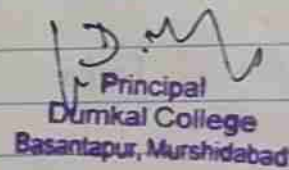 Principal
Dumkal College
Basantapur, Murshidabad